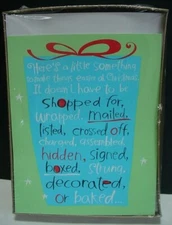 Here's a little something
to make those ease of Christmas
It doesn't have to be
shopped for,
wrapped, mailed,
listed, crossed off,
charged, assembled,
hidden, signed,
boxed, strung,
decorated,
or baked...